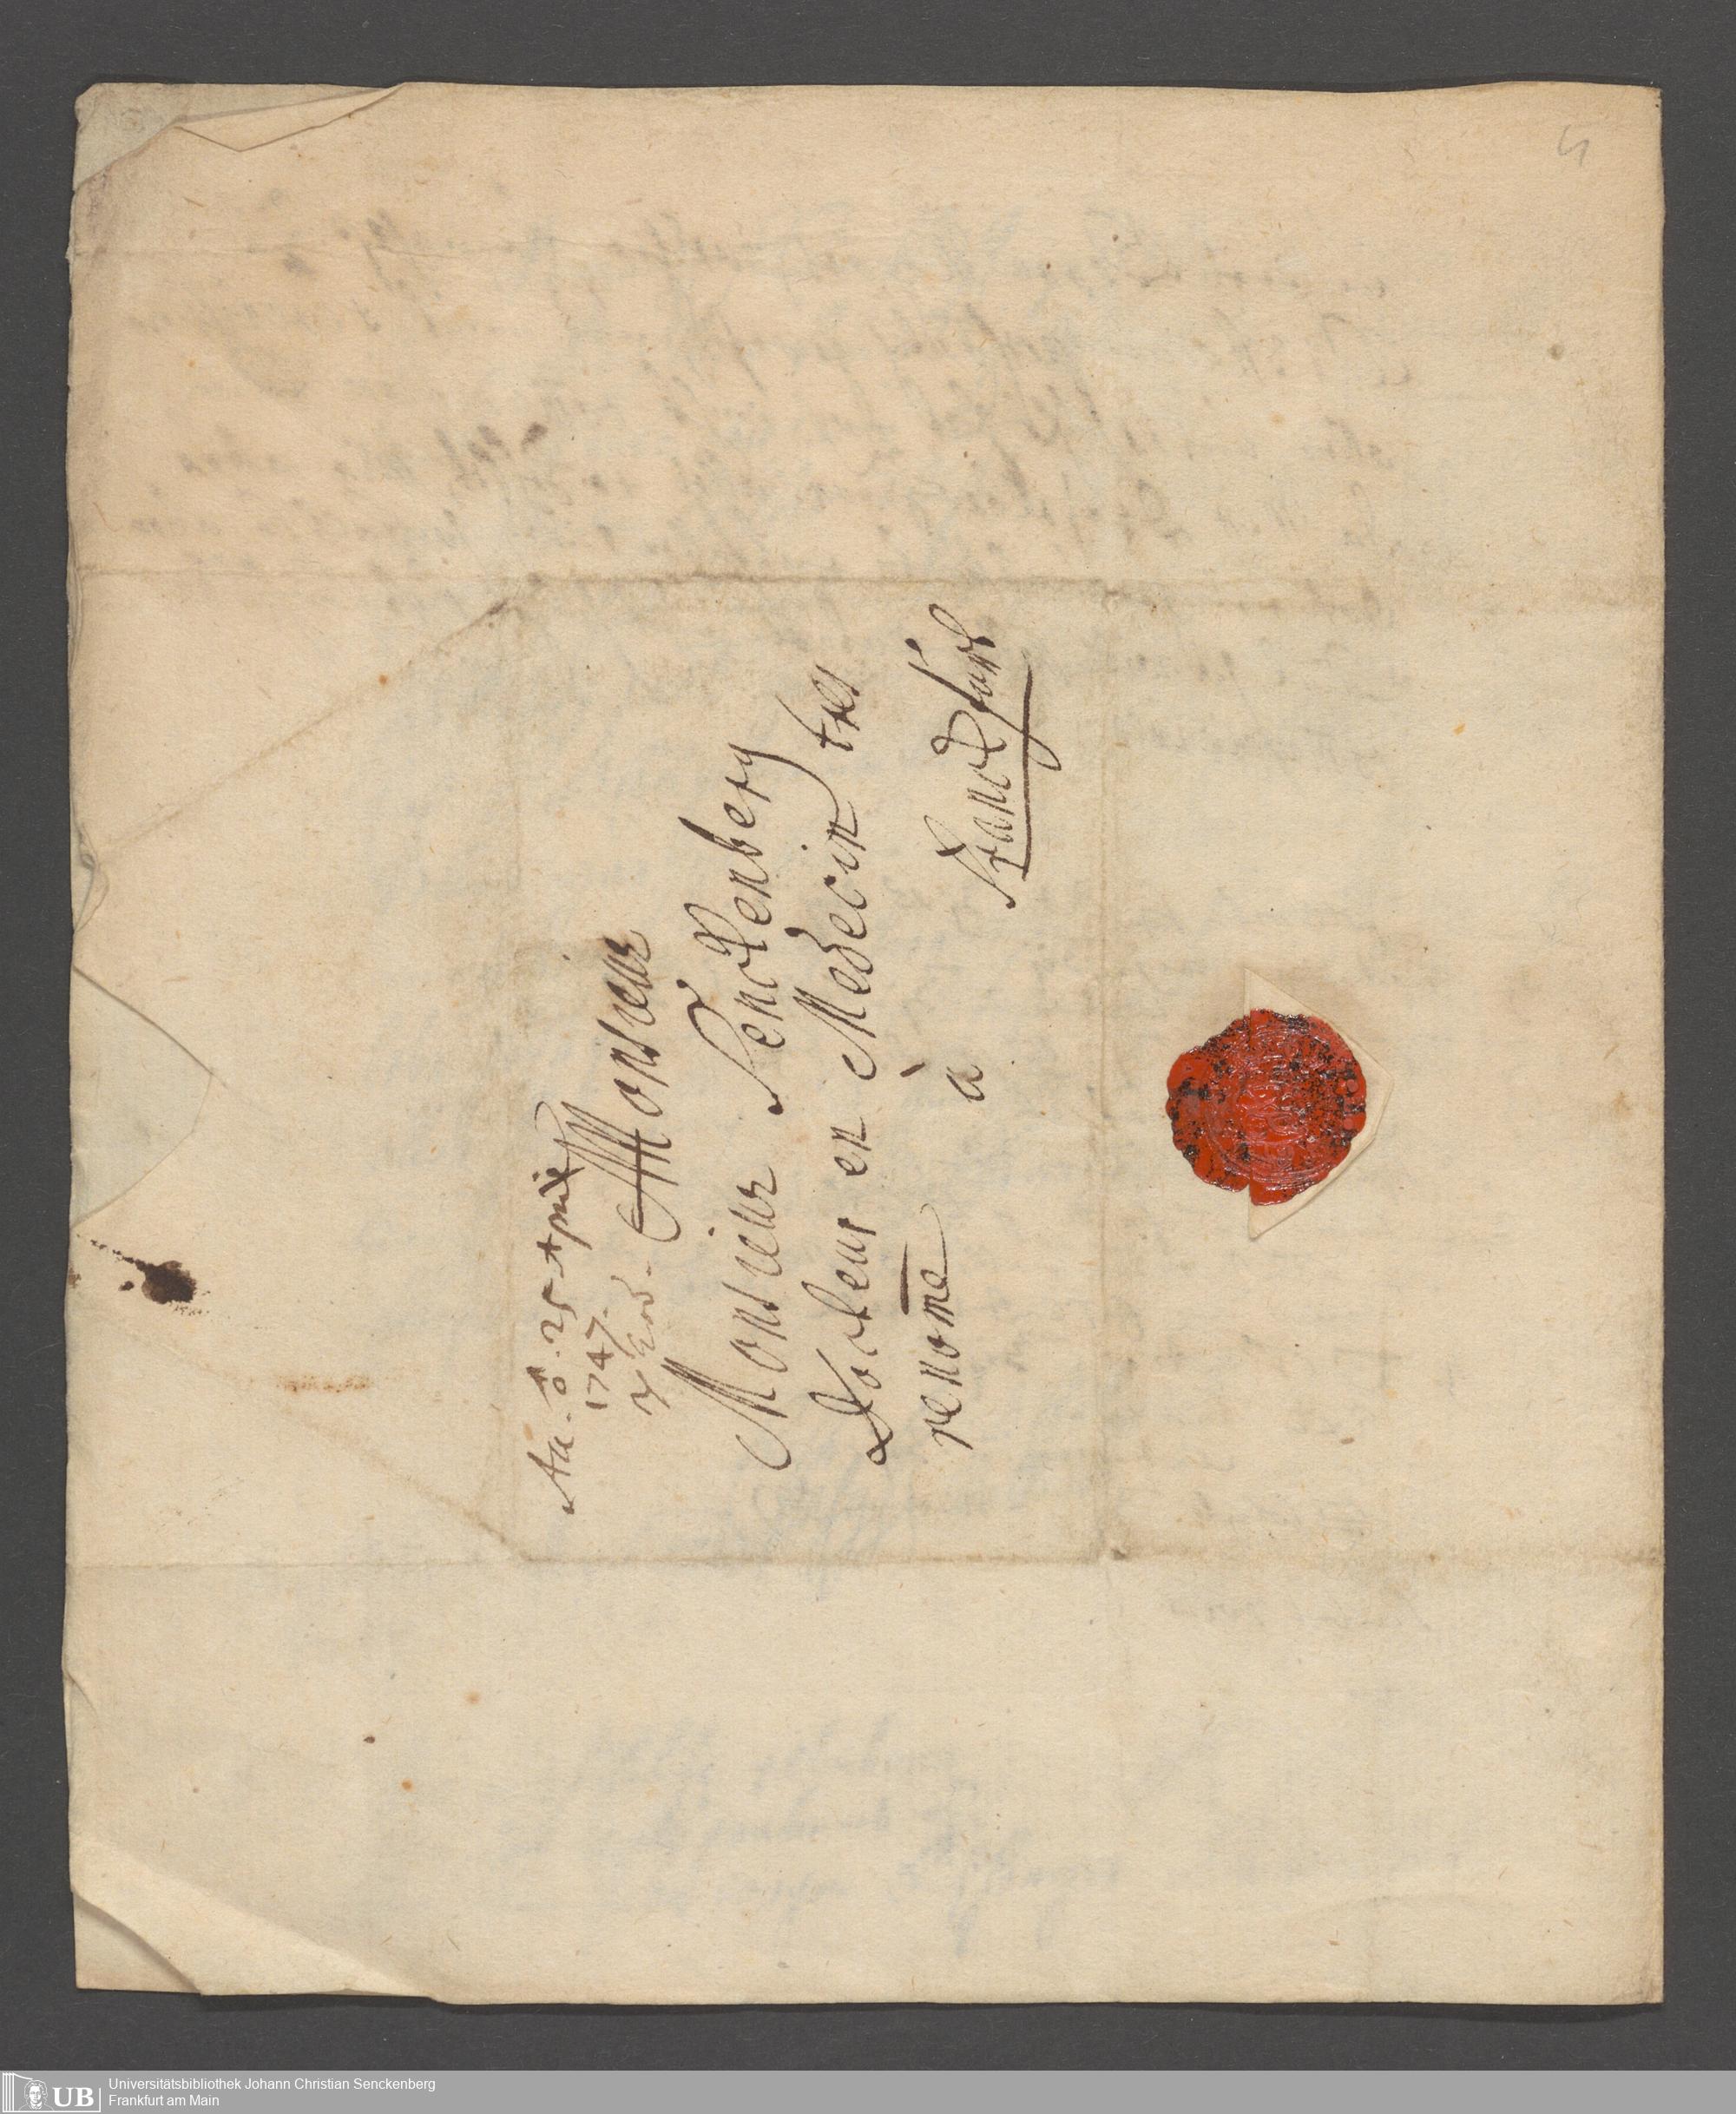 Aa. ♂. 25 Apr
1747.
Monsieur
Monsieur Senckenberg
Docteur en Medecin tres
renom̄e à
Franckfurt
Universitätsbibliothek Johann Christian Senckenberg
Frankfurt am Main
UB